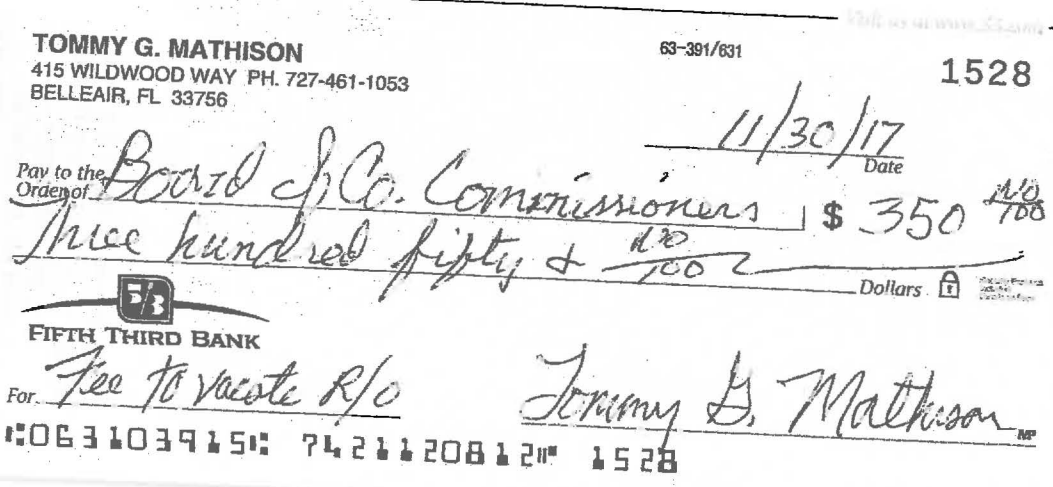 Visit us at www.53.com
TOMMY G. MATHISON
415 WILDWOOD WAY PH. 727-461-1053
BELLEAIR, FL 33756
63-391/631
1528
11/30/17
Date
Pay to the Order of Board of Co. Commissioners $ 350 no/100
Three hundred fifty & no/100 Dollars
5/3
FIFTH THIRD BANK
For Fee to vacate R/O
Tommy G. Mathison
MP
⑆063103915⑆ 7421120812⑈ 1528